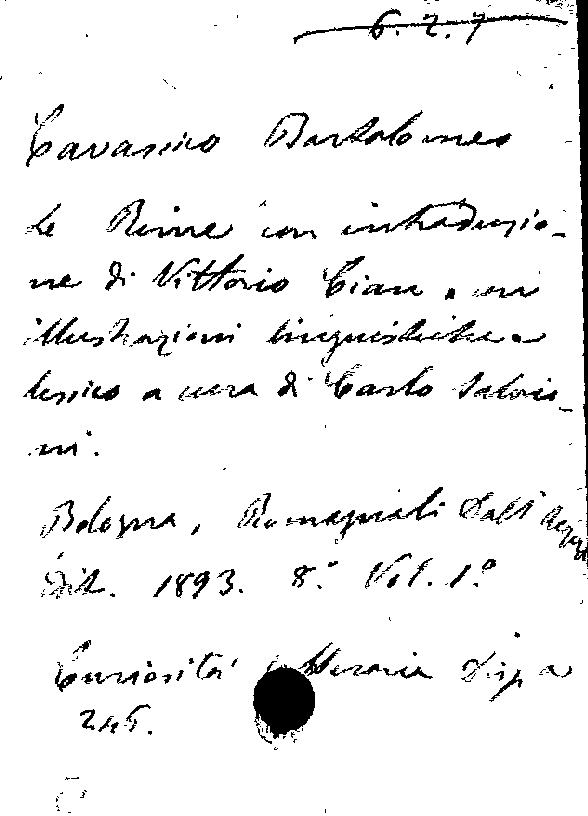 6.2.7
Cavassico Bartolomeo
Le Rime con introduzio-
ne di Vittorio Cian e con
illustrazioni linguistiche e
lessico a cura di Carlo Salvio-
ni.
Bologna, Romagnoli Dall'Acqua
Edit. 1893. 8.° Vol. 1.°
Curiosità letteraria Disp a
246.